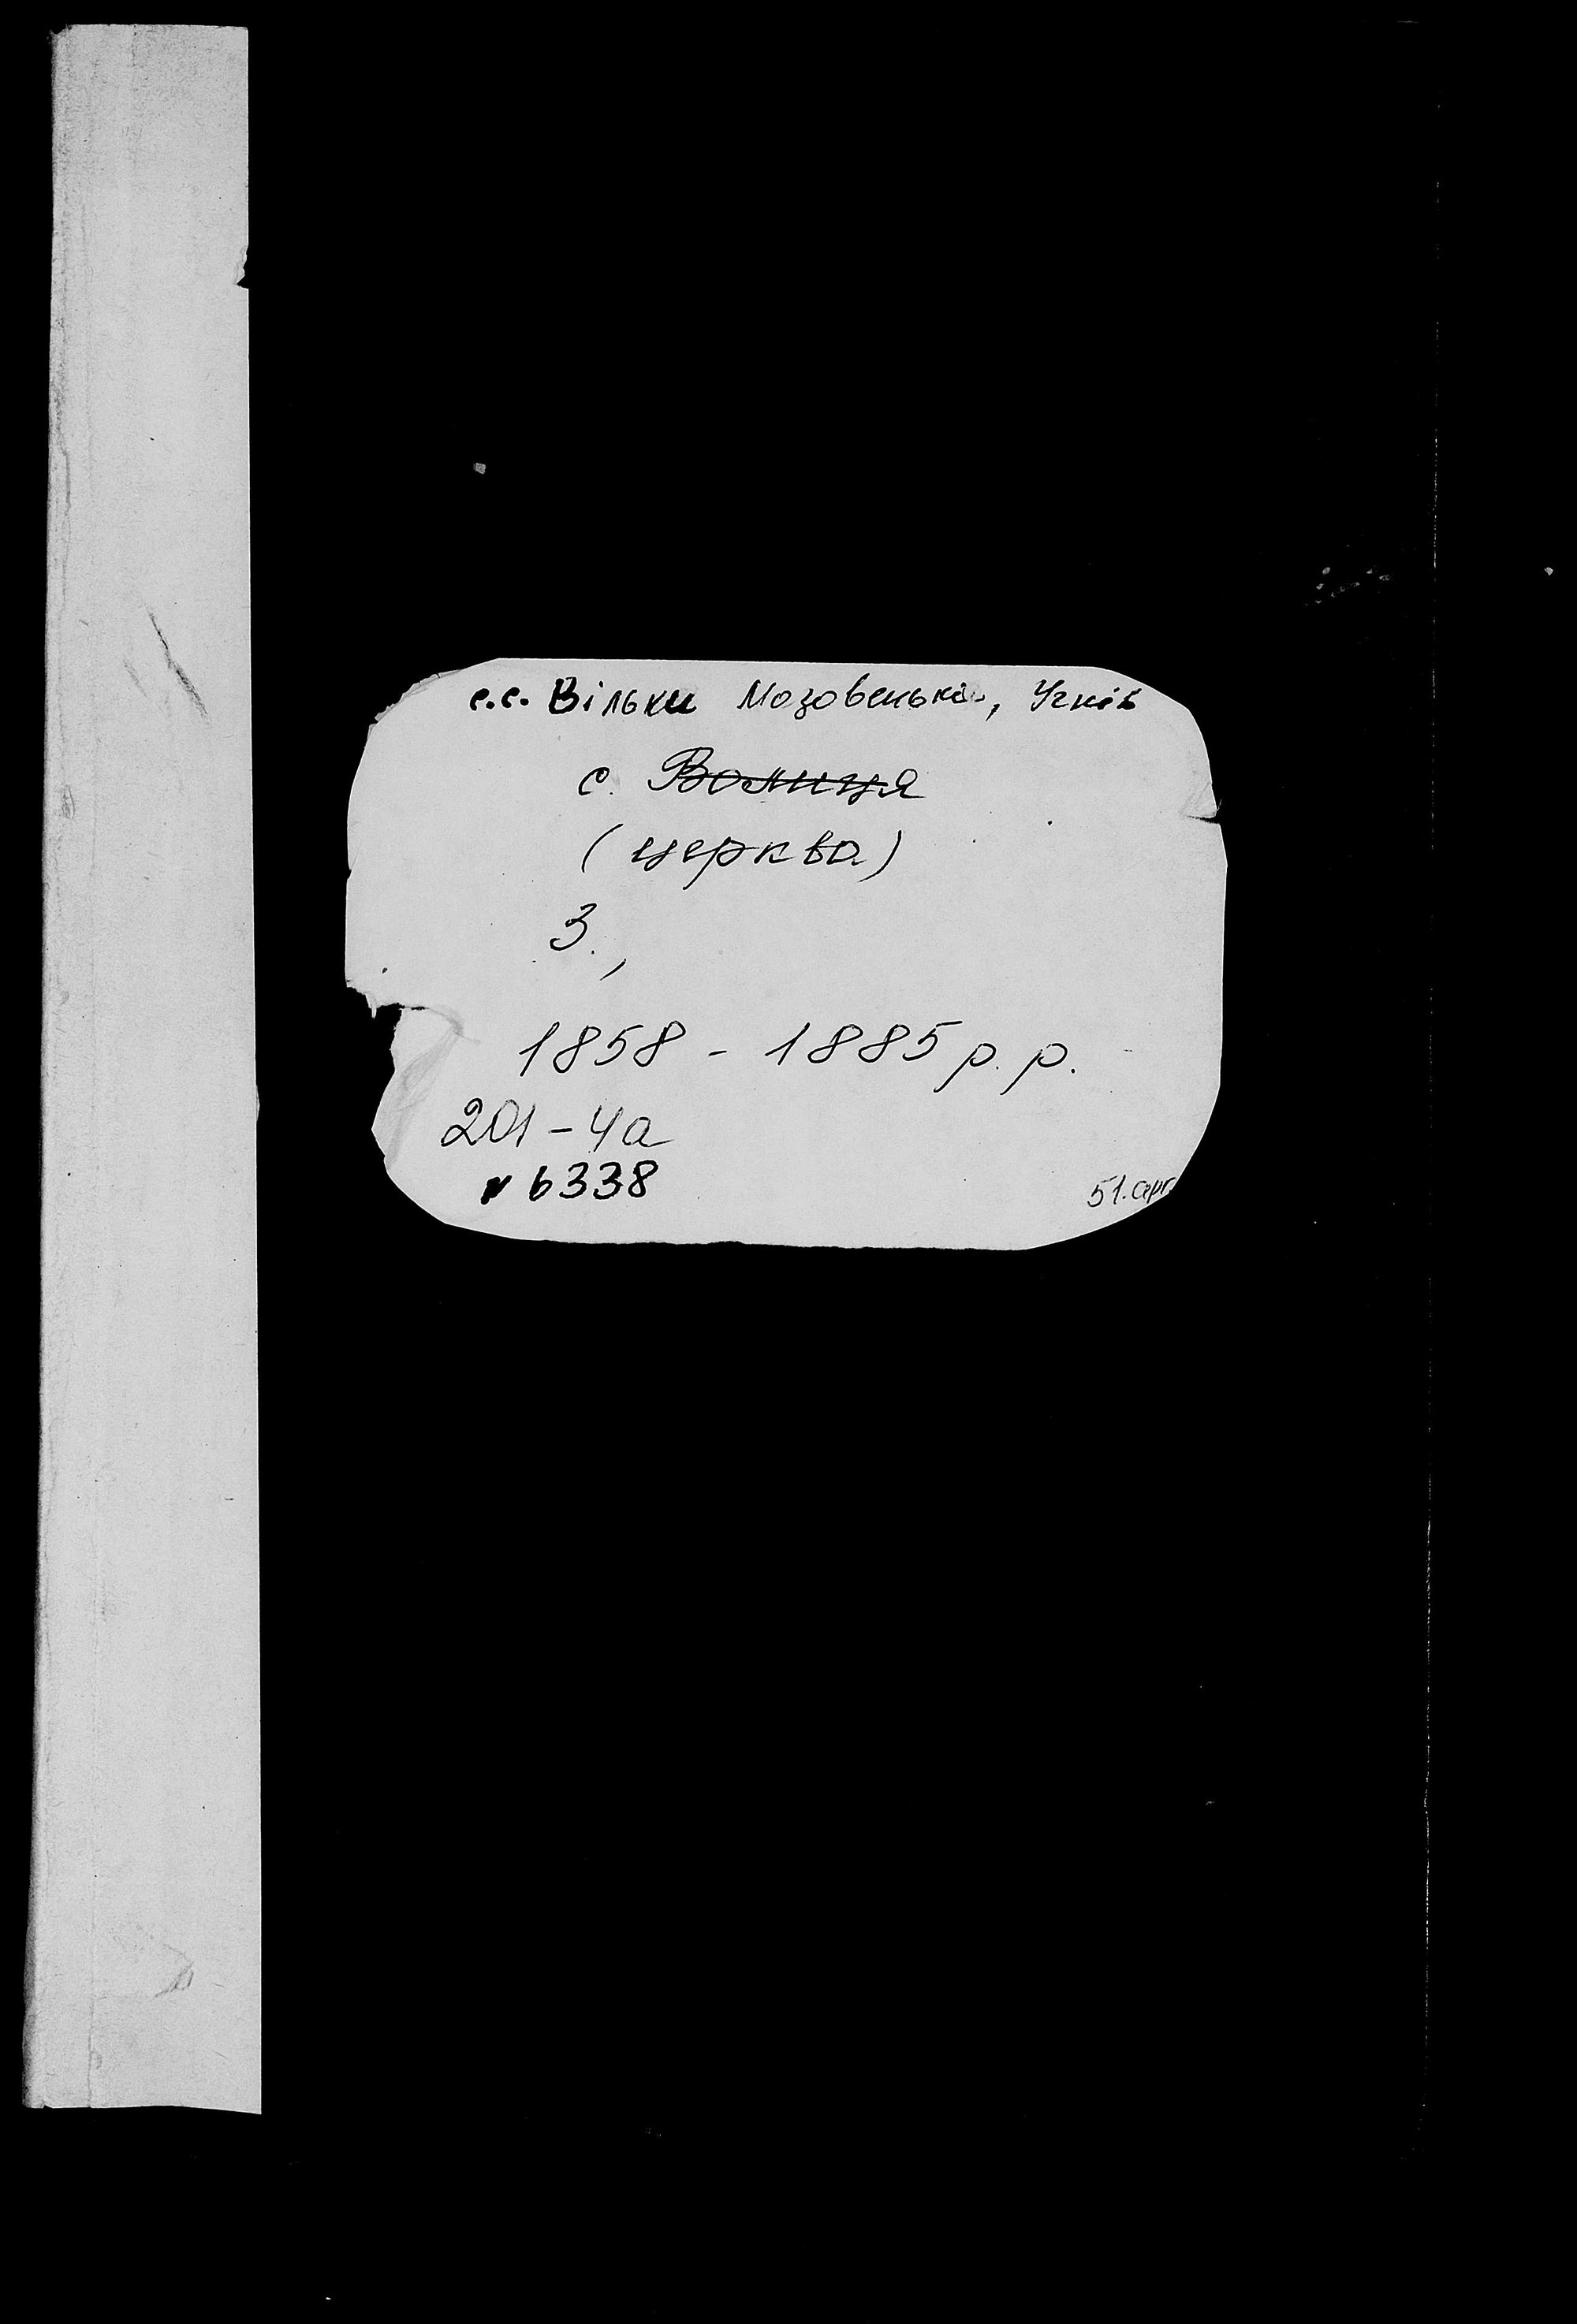 с.с. Вільки Мазовецькі, Угнів
с. Волиця
(церква)
З.,
1858 - 1885 р.р.
201-4а
6338
51.арк.